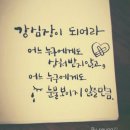 강심장이 되어라
어느 누구에게도
상처받지 않고,
어느 누구에게도
눈물 보이지 않을 만큼.